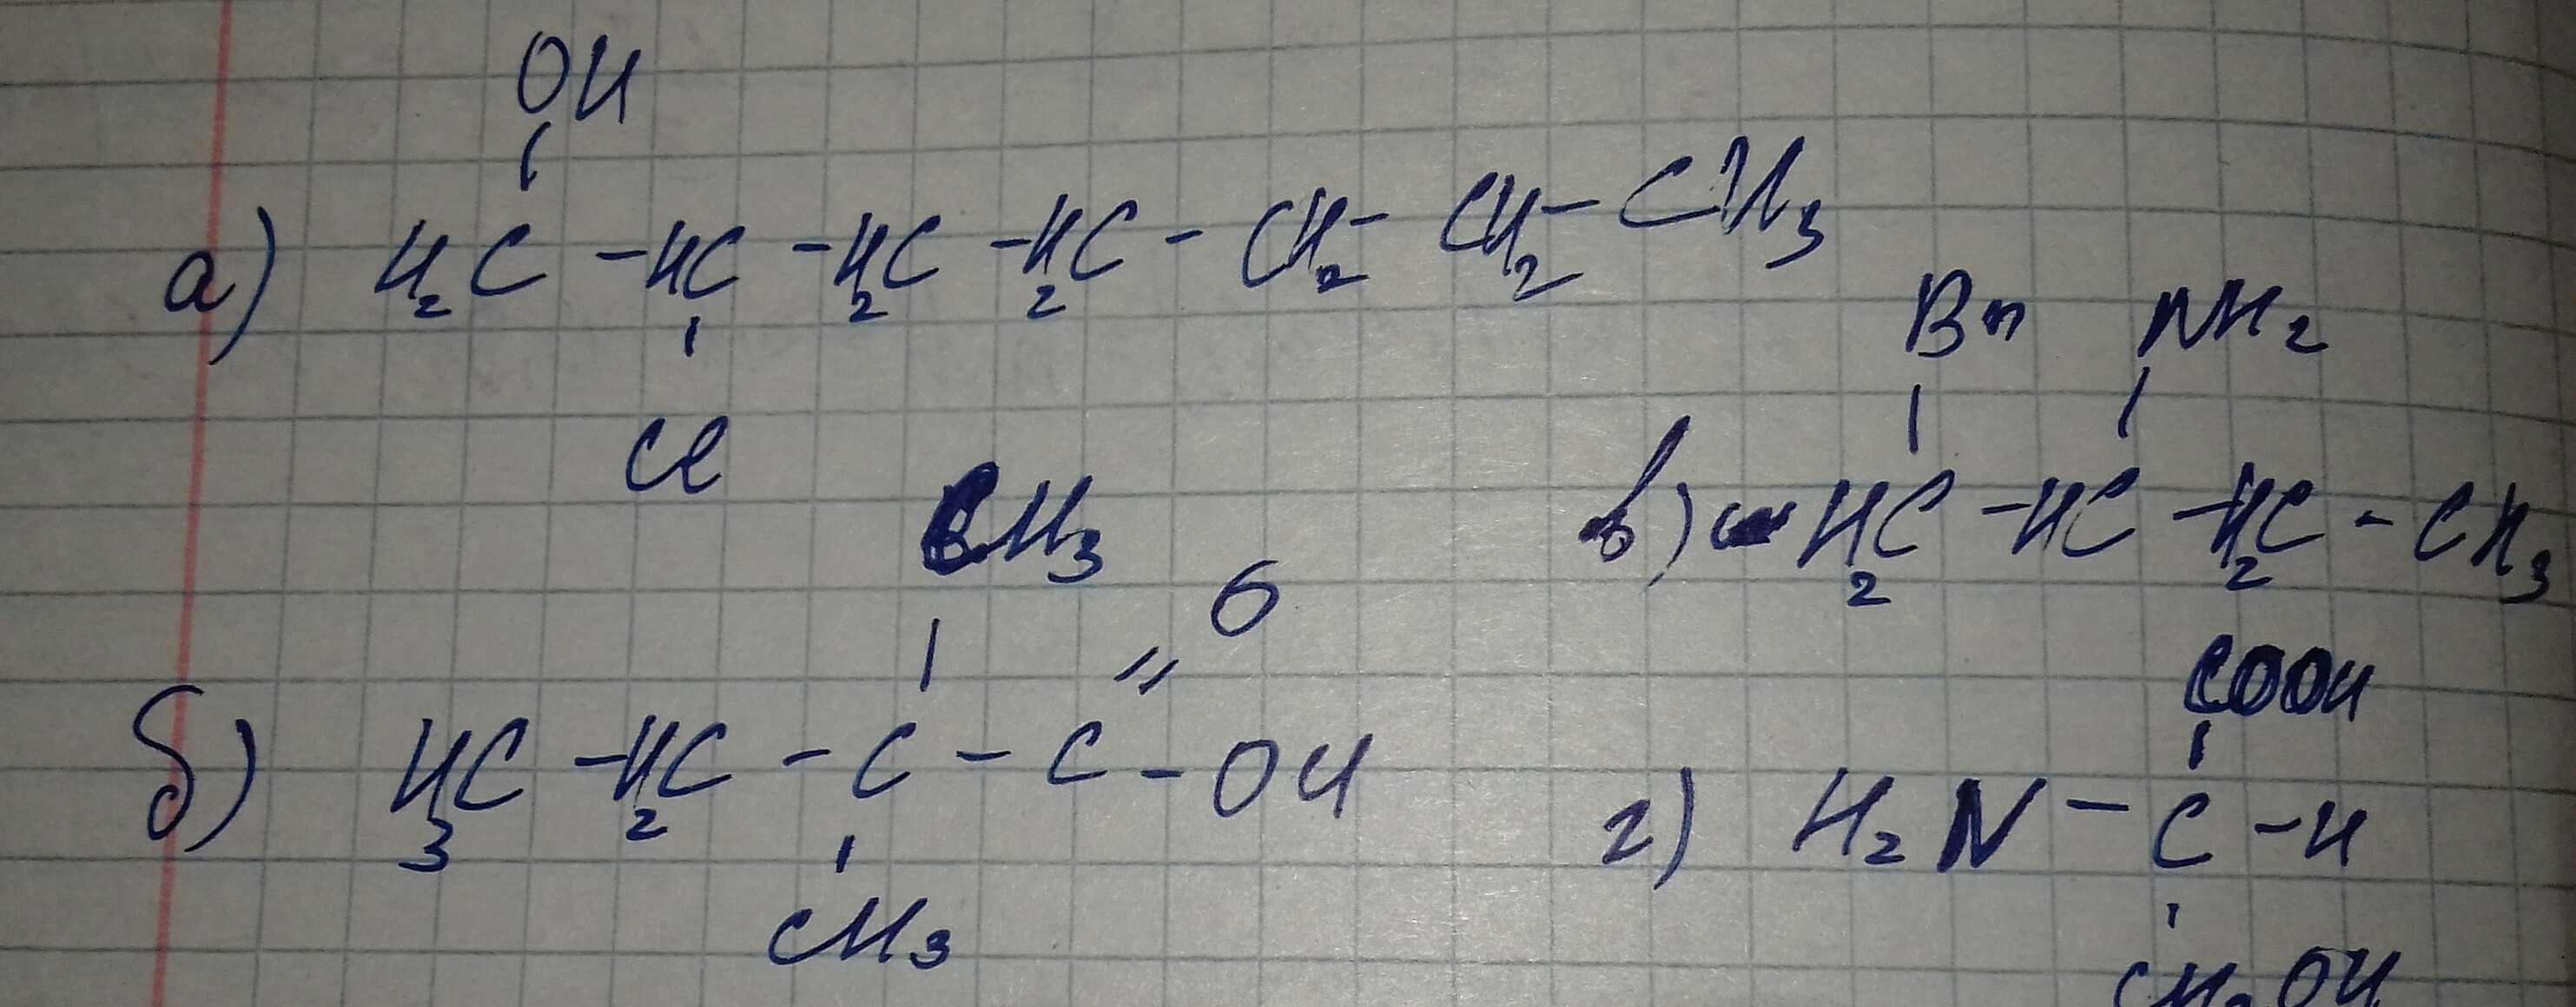 OH
а) H₂C - HC - H₂C - H₂C - CH₂ - CH₂ - CH₃
Cl
Br NH₂
в) H₂C - HC - H₂C - CH₃
CH₃
O
б) H₃C - H₂C - C - C - OH
CH₃
COOH
г) H₂N - C - H
CH₂OH